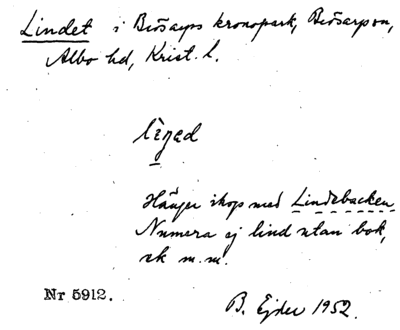 Lindet i Brösarps kronopark, Brösarp sn,
Albo hd, Krist. l.
Hänger ihop med Lindebacken
Numera ej lind utan bok,
ek m.m.
Nr 5912.
B. Ejder 1952.